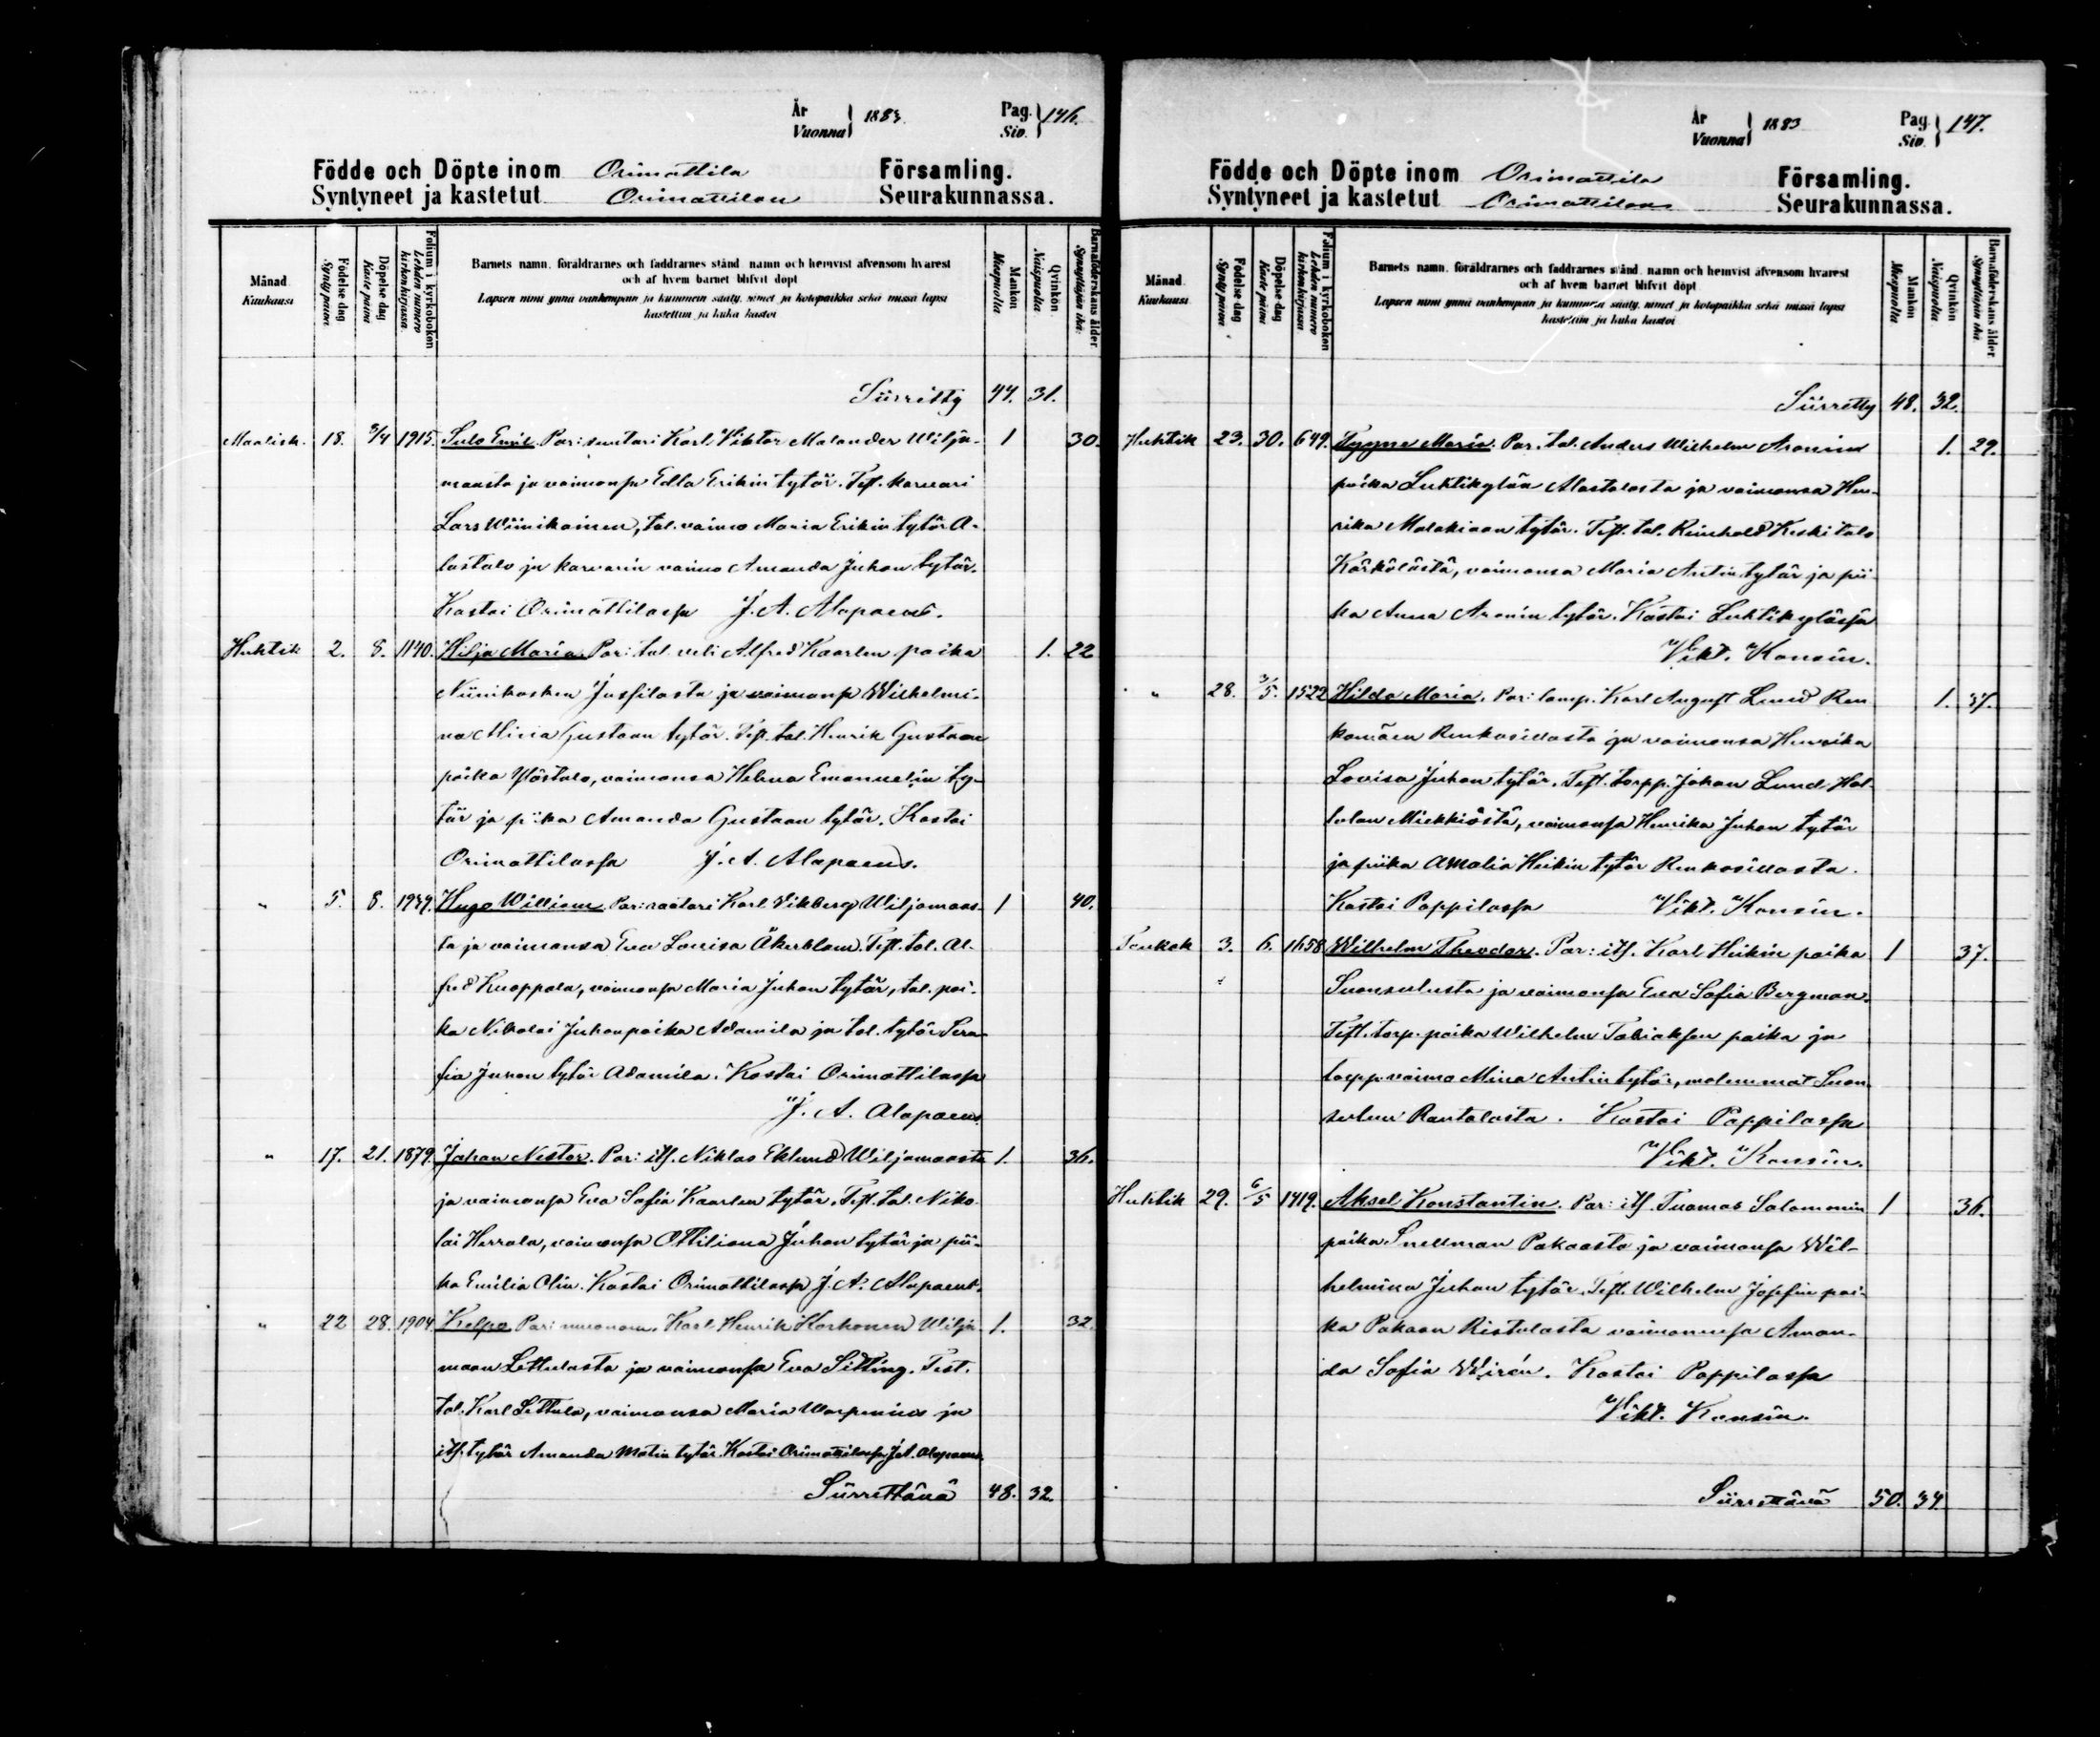 År
Vuonna } 1883.
Pag.
Siv. } 146.
Födde och Döpte inom Orimattila Församling.
Syntyneet ja kastetut Orimattilan Seurakunnassa.
Månad
Kuukausi
Födelse dag
Synty päivä
Döpelse dag
Kaste päivä
Folium i kyrkoboken
Lehden numero kirkonkirjassa
Barnets namn, föräldrarnes och faddrarnes stånd, namn och hemvist äfvensom hvarest
och af hvem barnet blifvit döpt
Lapsen nimi ynnä vanhempain ja kummein sääty, nimet ja kotopaikka sekä missä lapsi
kastettiin ja kuka kastoi
Mankön
Miespuolia
Qvinkön
Naispuolia
Barnaföderskans ålder
Synnyttäjän ikä
Siirretty 44. 31.
Maalisk. 18. 3/4 1915. Sulo Emil. Par: suutari Karl Viktor Malander Wilja- 1 30.
maasta ja vaimonsa Edla Erikin tytär. Test. karvari
Lars Wiinikainen, tal. vaimo Maria Erikin tytär A-
lastalo ja karvarin vaimo Amanda Juhan tytär.
Kastoi Orimattilassa J. A. Alopaeus.
Huhtik 2. 8. 1140. Hilja Maria. Par: tal. veli Alfred Kaarlen poika 1. 22
Niinikosken Jussilasta ja vaimonsa Wilhelmi-
na Miina Gustaan tytär. Test. tal. Henrik Gustaan
poika Yöstalo, vaimonsa Helena Emanuelin ty-
tär ja piika Amanda Gustaan tytär. Kastoi
Orimattilassa J. A. Alopaeus.
" 5. 8. 1939. Hugo William. Par: räätäri Karl Vikberg Wiljamaas- 1 40.
ta ja vaimonsa Eva Lovisa Åkerblom. Test. tal. Al-
fred Knoppala, vaimonsa Maria Juhan tytär, tal. poi-
ka Nikolai Juhanpoika Adamila ja tal. tytär Sera-
fia Juhan tytär Adamila. Kastoi Orimattilassa
J. A. Alopaeus
" 17. 21. 1879. Johan Nestor. Par: its. Niklas Eklund Wiljamaasta 1. 36.
ja vaimonsa Eva Sofia Kaarlen tytär. Test. tal. Niko-
lai Herrala, vaimonsa Ottiliana Juhan tytär ja pii-
ka Emilia Olin. Kastoi Orimattilassa J. A. Alopaeus.
" 22 28. 1904. Kelpo Par: muonam. Karl Henrik Korhonen Wilja- 1. 32.
maan Lettulasta ja vaimonsa Eva Sittling. Test.
tal. Karl Lettula, vaimonsa Maria Warpenius ja
its. tytär Amanda Matin tytär. Kastoi Orimattilassa J. A. Alopaeus.
Siirrettävä 48. 32.
År
Vuonna } 1883
Pag.
Siv. } 147.
Födde och Döpte inom Orimattila Församling.
Syntyneet ja kastetut Orimattilan Seurakunnassa.
Månad
Kuukausi
Födelse dag
Synty päivä
Döpelse dag
Kaste päivä
Folium i kyrkoboken
Lehden numero kirkonkirjassa
Barnets namn, föräldrarnes och faddrarnes stånd, namn och hemvist äfvensom hvarest
och af hvem barnet blifvit döpt
Lapsen nimi ynnä vanhempain ja kummein sääty, nimet ja kotopaikka sekä missä lapsi
kastettiin ja kuka kastoi
Mankön
Miespuolia
Qvinkön
Naispuolia
Barnaföderskans ålder
Synnyttäjän ikä
Siirretty 48. 32.
Huhtik 23. 30. 649. Tyyne Maria. Par. tal. Anders Wilhelm Aronin 1. 29.
poika Luhtikylän Alastalosta ja vaimonsa Hen-
rika Malakiaan tytär. Test. tal. Reinhold Keskitalo
Kärkölästä, vaimonsa Maria Antin tytär ja pii-
ka Anna Aronin tytär. Kastoi Luhtikylässä
Vikt. Konsin.
" 28. 3/5. 1522 Hilda Maria. Par: lamp. Karl August Lund Ren- 1. 37.
komäen Renkosillasta ja vaimonsa Henrika
Lovisa Juhan tytär. Test. torpp. Johan Lund Hol-
lolan Miekkiöstä, vaimonsa Henrika Juhan tytär
ja piika Amalia Heikin tytär Renkosillasta.
Kastoi Pappilassa Vikt. Konsin.
Toukok 3. 6. 1658 Wilhelm Theodor. Par: its. Karl Heikin poika 1 37.
Suonsulusta ja vaimonsa Eva Sofia Bergman.
Test. torp. poika Wilhelm Tobiaksen poika ja
torpp. vaimo Mina Antin tytär, molemmat Suon-
sulun Rantalasta. Kastoi Pappilassa
Vikt. Konsin.
Huhtik 29. 6/5 1419. Aksel Konstantin. Par: its. Tuomas Salomonin 1 36.
poika Snellman Pakaasta ja vaimonsa Wil-
helmina Juhan tytär. Test. Wilhelm Josefin poi-
ka Pakaan Ristolasta vaimonensa Aman-
da Sofia Wirén. Kastoi Pappilassa
Vikt. Konsin.
Siirrettävä 50. 34.